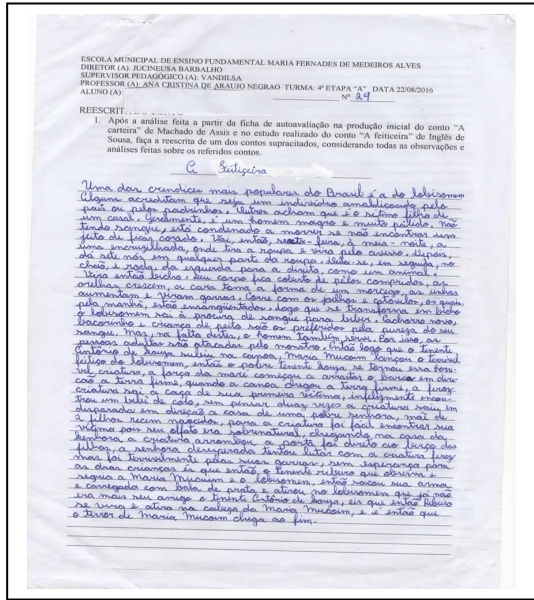 ESCOLA MUNICIPAL DE ENSINO FUNDAMENTAL MARIA FERNADES DE MEDEIROS ALVES
DIRETOR (A): JUCINEUSA BARBALHO
SUPERVISOR PEDAGÓGICO (A): VANDILSA
PROFESSOR (A): ANA CRISTINA DE ARAUJO NEGRAO TURMA: 4ª ETAPA "A" DATA 22/08/2016
ALUNO (A): Nº 29
REESCRIT CONTO
1. Após a análise feita a partir da ficha de autoavaliação na produção inicial do conto "A
carteira" de Machado de Assis e no estudo realizado do conto "A feiticeira" de Inglês de
Sousa, faça a reescrita de um dos contos supracitados, considerando todas as observações e
análises feitas sobre os referidos contos.
A feitiçeira
Uma das crendices mais populares do Brasil é a do lobisomem
Alguns acreditam que seja um indivíduo amaldiçoado pelo
pais ou pelos padrinhos, Outros acham que é o sétimo filho de
um casal. Geralmente, é um homem magro e muito pálido, não
tendo sangue, está condenado a morrer se não encontrar um
jeito de ficar corado. Vai, então, sexta-feira, à meia-noite, a
uma encruzilhada, onde tira a roupa e vira pelo avesso, depois,
dá sete nós em qualquer parte da roupa. deita-se, em seguida, no
chão e roda, da esquerda para a direita, como um animal.
Vira então bicho: seu corpo fica coberto de pêlos compridos, as
orelhas crescem, a cara toma a forma de um morcego, as unhas
aumentam e viram garras. Corre com os joelhos e cotovelos, os quais,
pela manhã, estão ensangüentados. Logo que se transforma em bicho
o lobisomem sai à procura de sangue para beber. Cachorro novo,
bacorinho e criança de peito são os preferidos pela pureza do seu
sangue. Mas, na falta destes, o homem também serve. Por isso, as
pessoas adultas são atacadas pelo monstro. Então logo que o tenente
Antônio de Souza subiu na canoa, Maria Mucoim lançou o terrivel
feitiço do lobisomem, então o pobre tenente Souza, se tornou essa horri-
vel criatura, a força da maré começou a arrastar o barco em dire-
cão a terra firme, quando a canoa chegou a terra firme, a feroz
criatura sai a caça de sua primeira vitima, infelizmente encon-
trou um bebê de colo, sem pensar duas vezes a criatura saiu em
disparada em direção a casa de uma pobre senhora, mãe de
2 filhos recem nascidos, para a criatura foi fácil encontrar sua
vitima pois seu olfato era sobrenatural, chegando na casa da
senhora a criatura arrombou a porta foi direto ao berço dos
filhos, a senhora desesperada tentou lutar com a criatura feroz
mas foi terrivelmente pelas suas garras, sem esperança para
as duas crianças eis que então o tenente ribeiro que observa e
segue a Maria Mucuim e o lobisomem, então sacou sua arma
e carregada com bala de prata e atirou no lobisomem que já não
era mais seu amigo o tenente Antônio de Souza, eis que então Ribeiro
se vira e atira na cabeça da Maria Mucoim, e é então que
o terror de Maria Mucoim chega ao fim.